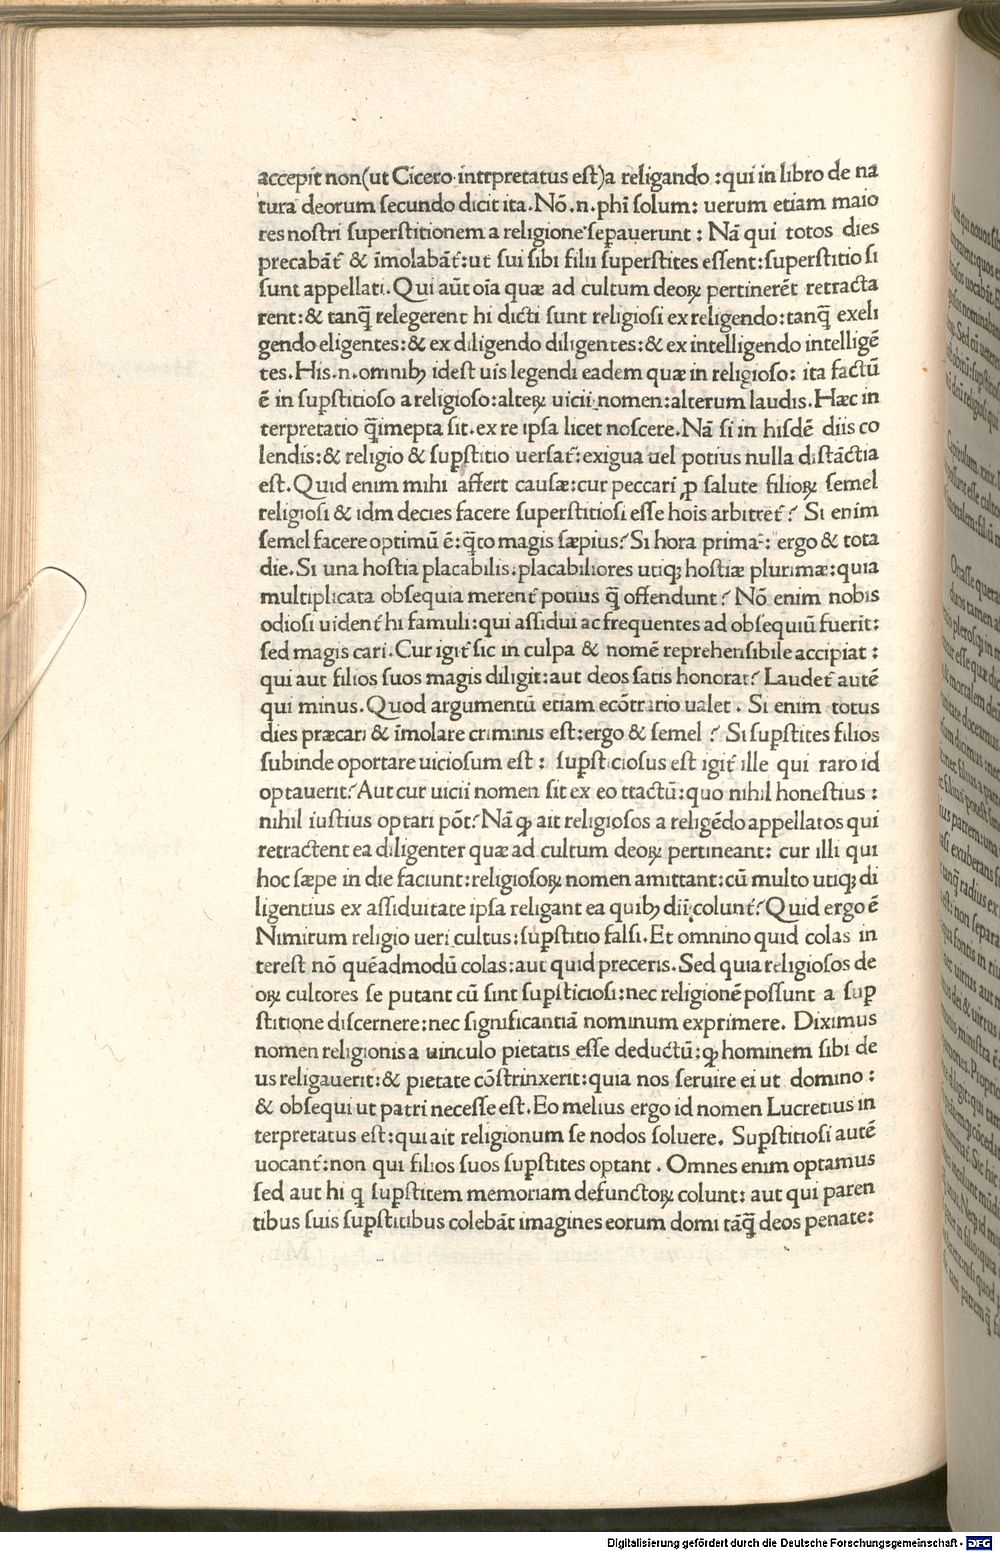 accepit non(ut Cicero interpretatus eſt)a religando :qui in libro de na
tura deorum ſecundo dicit ita.Nō.n.phi ſolum: uerum etiam maio
res noſtri ſuperſtitionem a religione ſepauerunt : Nā qui totos dies
precabāt᷑ & īmolabāt᷑:ut ſui ſibi filii ſuperſtites eſſent:ſuperſtitio ſi
ſunt appellati.Qui aūt oīa quæ ad cultum deoꝝ pertinerēt retracta
rent:& tanq̄ relegerent hi dicti ſunt religioſi ex religendo:tanq̄ exeli
gendo eligentes:& ex diligendo diligentes:& ex intelligendo intelligē
tes.His.n.omnibꝫ ideſt uis legendi eadem quæ in religioſo: ita factū
ē in ſuꝑſtitioſo a religioſo:alteꝝ uicii nomen:alterum laudis.Hæc in
terpretatio q̄imepta ſit.ex re ipſa licet noſcere.Nā ſi in hiſdē diis co
lendis:& religio & ſuꝑſtitio uerſat᷑:exigua uel potius nulla diſtāctia
eſt.Quid enim mihi affert cauſæ:cur peccari ꝓ ſalute filioꝝ ſemel
religioſi & idm decies facere ſuperſtitioſi eſſe hois arbitret᷑? Si enim
ſemel facere optimū ē:q̄to magis ſæpius? Si hora prima: ergo & tota
die.Si una hoſtia placabilis:placabiliores utiqꝫ hoſtiæ plurimæ:quia
multiplicata obſequia merent᷑ potius q̄ offendunt? Nō enim nobis
odioſi uident᷑ hi famuli:qui aſſidui ac frequentes ad obſequiū fuerit:
ſed magis cari.Cur igit᷑ ſic in culpa & nomē reprehenſibile accipiat :
qui aut filios ſuos magis diligit:aut deos ſatis honorat? Laudet᷑ autē
qui minus.Quod argumentū etiam ecōtrario ualet . Si enim totus
dies præcari & īmolare criminis eſt:ergo & ſemel ? Si ſuꝑſtites filios
ſubinde oportare uicioſum eſt : ſuꝑſticioſus eſt igit᷑ ille qui raro id
optauerit? Aut cur uicii nomen ſit ex eo ttactū:quo nihil honeſtius :
nihil iuſtius optari pōt? Nā ꝙ ait religioſos a religēdo appellatos qui
retractent ea diligenter quæ ad cultum deoꝝ pertineant: cur illi qui
hoc ſæpe in die faciunt:religioſoꝝ nomen amittant:cū multo utiqꝫ di
ligentius ex aſſiduitate ipſa religant ea quibꝫ dii colunt᷑? Quid ergo ē
Nimirum religio ueri cultus:ſuꝑſtitio falſi.Et omnino quid colas in
tereſt nō quēadmodū colas:aut quid preceris.Sed quia religioſos de
oꝝ cultores ſe putant cū ſint ſuꝑſticioſi:nec religionē poſſunt a ſuꝑ
ſtitione diſcernere:nec ſignificantiā nominum exprimere. Diximus
nomen religionis a uinculo pietatis eſſe deductū:ꝙ hominem ſibi de
us religauerit:& pietate cōſtrinxerit:quia nos ſeruire ei ut domino :
& obſequi ut patri neceſſe eſt.Eo melius ergo id nomen Lucretius in
terpretatus eſt:qui ait religionum ſe nodos ſoluere. Suꝑſtitioſi autē
uocant᷑:non qui filios ſuos ſuꝑſtites optant . Omnes enim optamus
ſed aut hi q ſuꝑſtitem memoriam defunctoꝝ colunt: aut qui paren
tibus ſuis ſuꝑſtitibus colebāt imagines eorum domi tāq̄ deos penate:
Digitalisierung gefördert durch die Deutsche Forschungsgemeinschaft - DFG